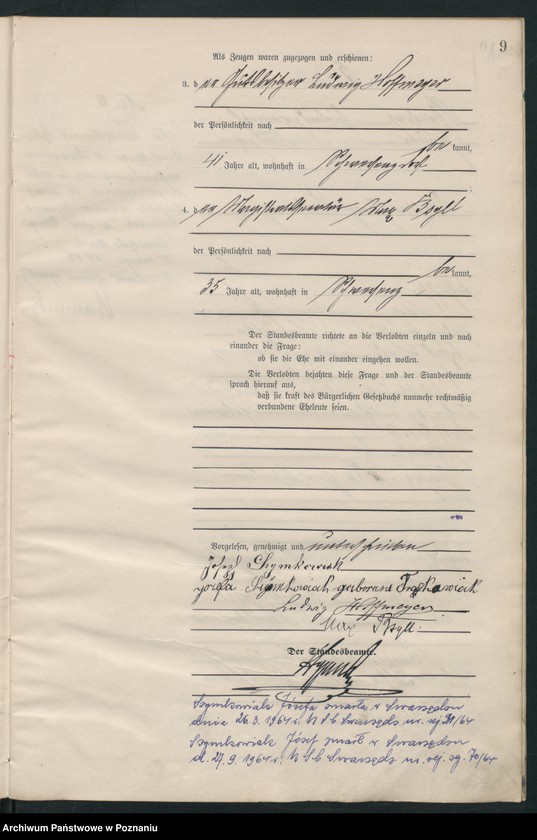 9
Als Zeugen waren zugezogen und erschienen:
3. der Gutsbesitzer Ludwig Hoffmeyer
der Persönlichkeit nach
bekannt,
41 Jahre alt, wohnhaft in Schwersenz
;
4. der Max Bsyll
der Persönlichkeit nach
bekannt,
35 Jahre alt, wohnhaft in Schwersenz
Der Standesbeamte richtete an die Verlobten einzeln und nach
einander die Frage:
ob sie die Ehe mit einander eingehen wollen.
Die Verlobten bejahten diese Frage und der Standesbeamte
sprach hierauf aus,
daß sie kraft des Bürgerlichen Gesetzbuchs nunmehr rechtmäßig
verbundene Eheleute seien.
Vorgelesen, genehmigt und unterschrieben
Josef Szymkowiak
Szymkowiak geborene
Ludwig Hoffmeyer
Max Bsyll.
Der Standesbeamte.
Szymkowiak Józefa zmarła w Swarzędzu
dnia 26.3.1964 r. U S C Swarzędz nr. 21/64
Szymkowiak Józef zmarł w Swarzędzu
d. 27.9.1964 r. U S C Swarzędz nr. rej. zg. 70/64
Archiwum Państwowe w Poznaniu